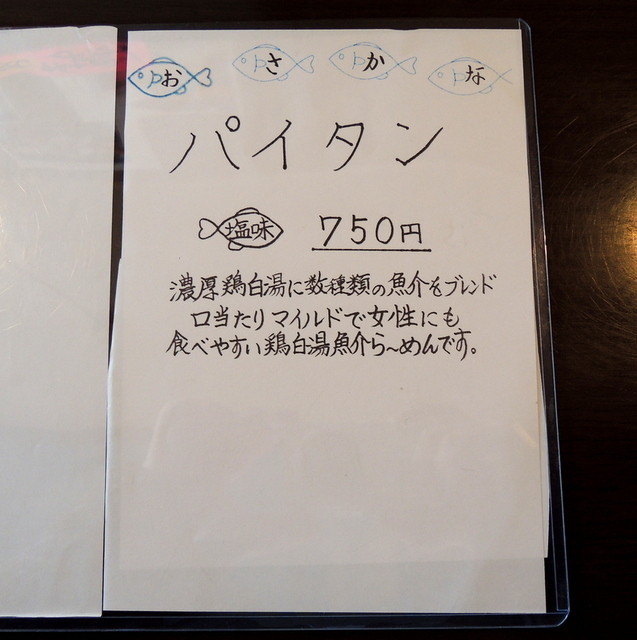 おさかな
パイタン
塩味 750円
濃厚鶏白湯に数種類の魚介をブレンド
口当たりマイルドで女性にも
食べやすい鶏白湯魚介ら〜めんです。